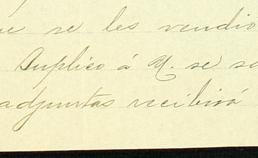 se les vendio
Suplico á V. se s
adjuntas recibirá